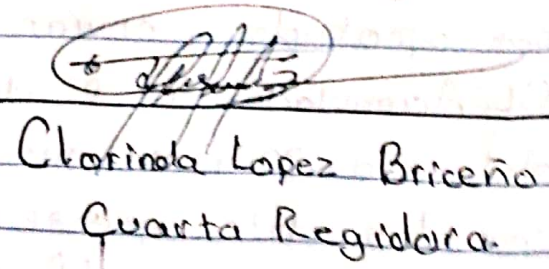 Clorinda Lopez Briceño
Cuarta Regidora.